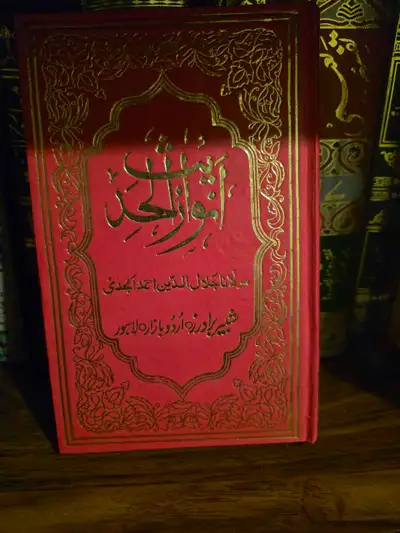 انوار الحدیث
مولانا جلال الدین احمد امجدی
شبیر برادرز ○ اردو بازار ○ لاہور